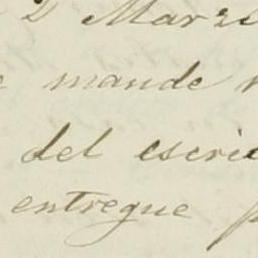 D Marzo
mande
del escri
entregue